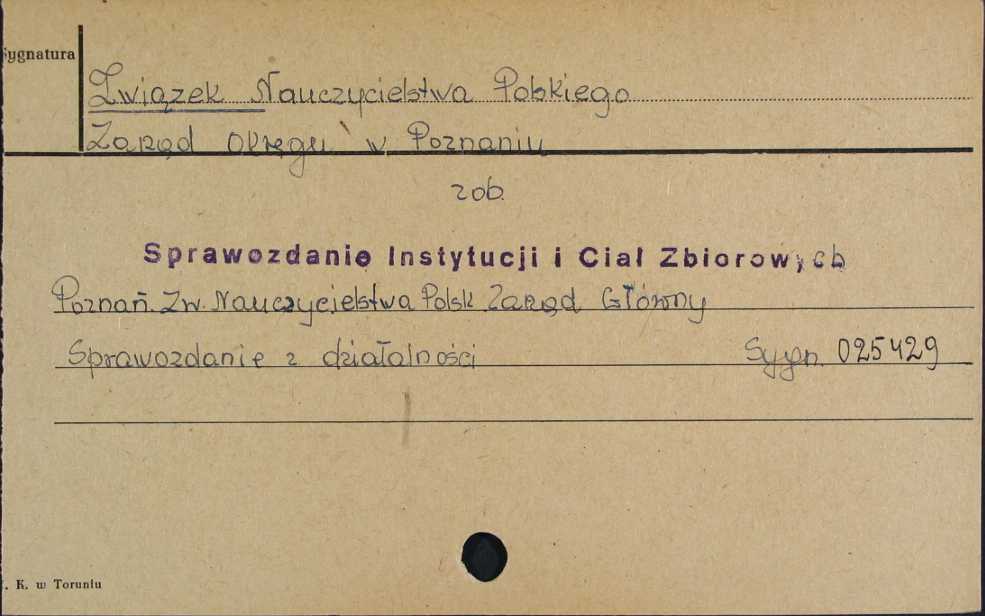 Sygnatura
Związek Nauczycielstwa Polskiego
Zarząd Okręgu w Poznaniu
zob.
Sprawozdanie Instytucji i Ciał Zbiorowych
Poznań. Zw. Nauczycielstwa Polsk. Zarząd Główny
Sprawozdanie z działalności Sygn. 025429
. K. w Toruniu